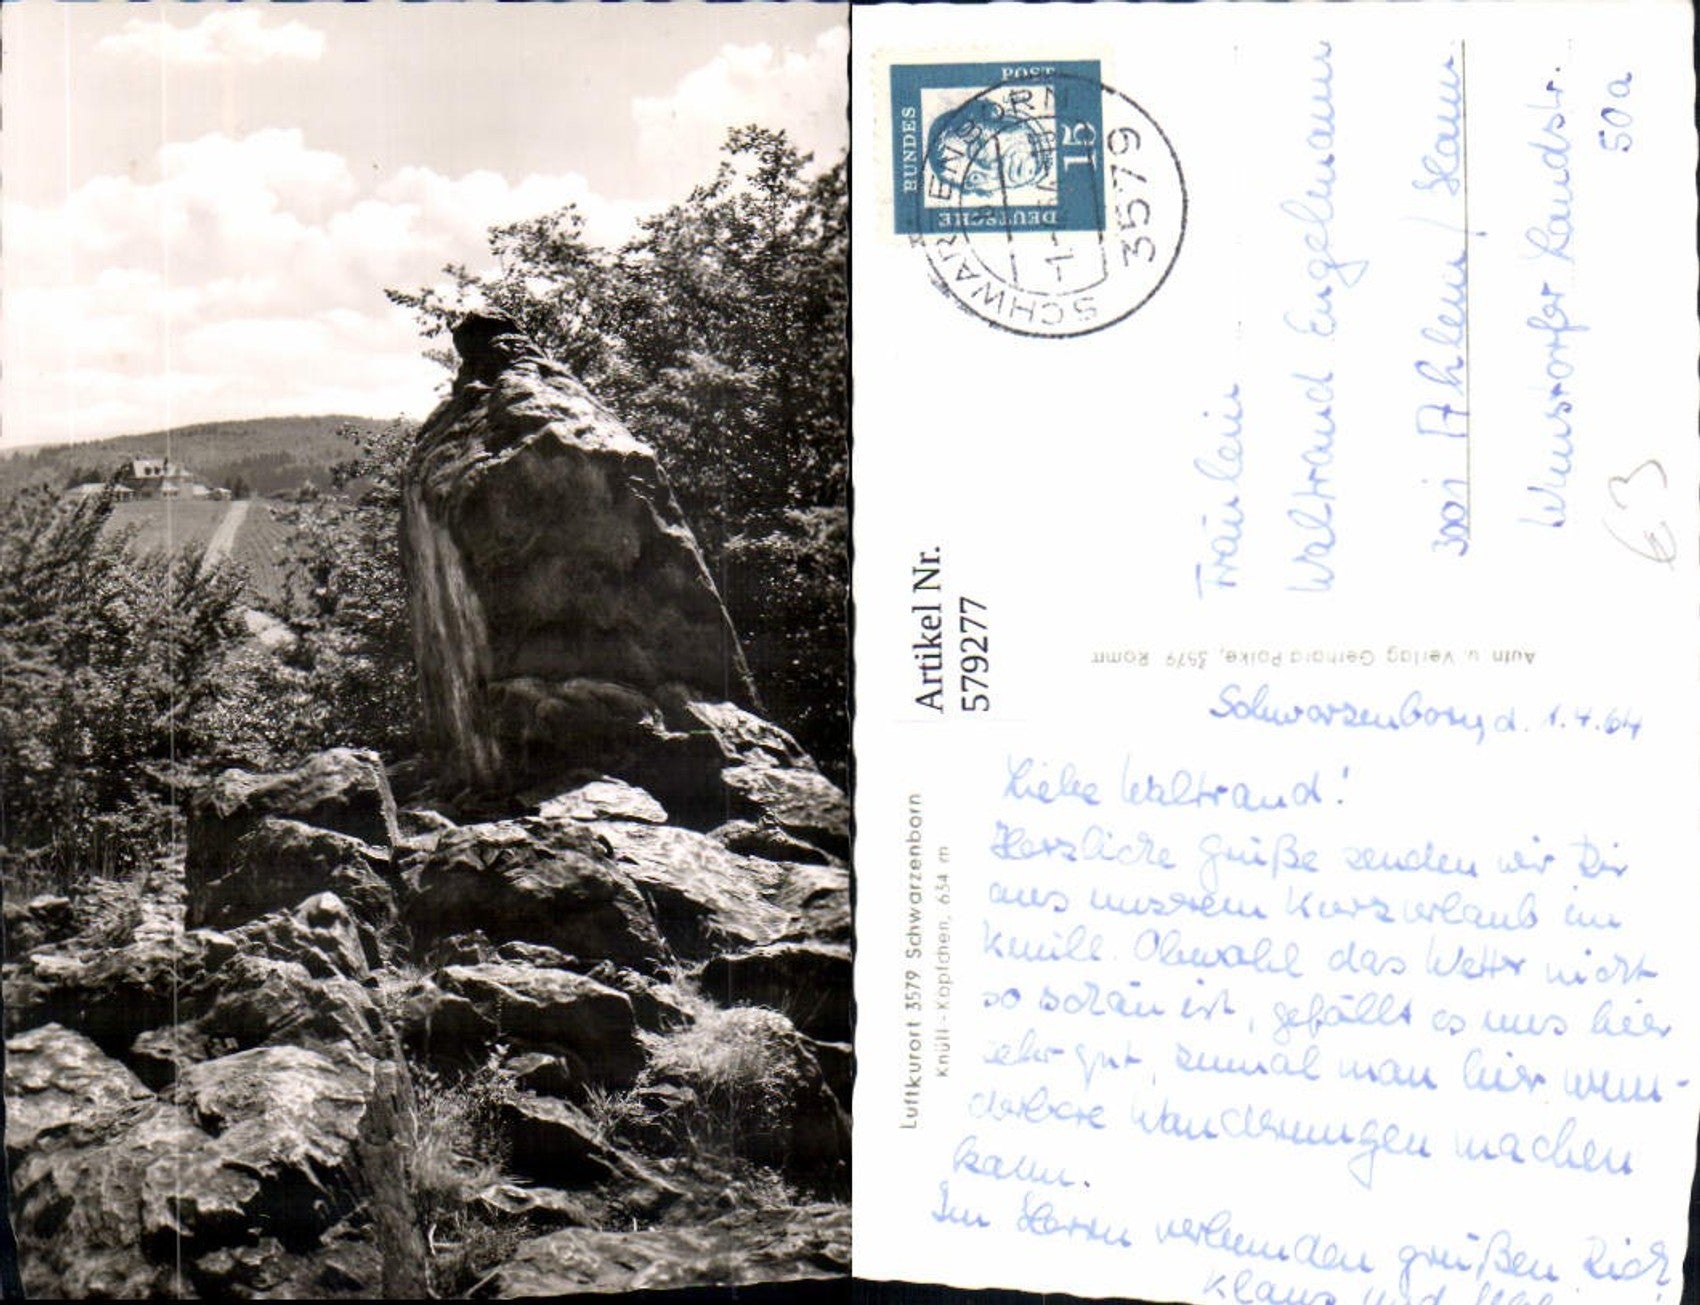 DEUTSCHE
BUNDES
POST
15
SCHWARZENBORN
3579
Fräulein
Waltraud Engelmann
3001 Ahlem / Hann.
Wunstorfer Landstr.
50a
€3
Artikel Nr.
579277
Aufn. u. Verlag Gerhard 3579
Luftkurort 3579 Schwarzenborn
Knüll-Köpfchen, 634 m
Schwarzenborn, d. 1.4.64
Liebe Waltraud!
Herzliche Grüße senden wir Dir
aus unserem Kurzurlaub im
Knüll. Obwohl das Wetter nicht
so schön ist, gefällt es uns hier
sehr gut, zumal man hier wun-
derbare Wanderungen machen
kann.
Im Herrn verbunden grüßen Dich
Klaus und